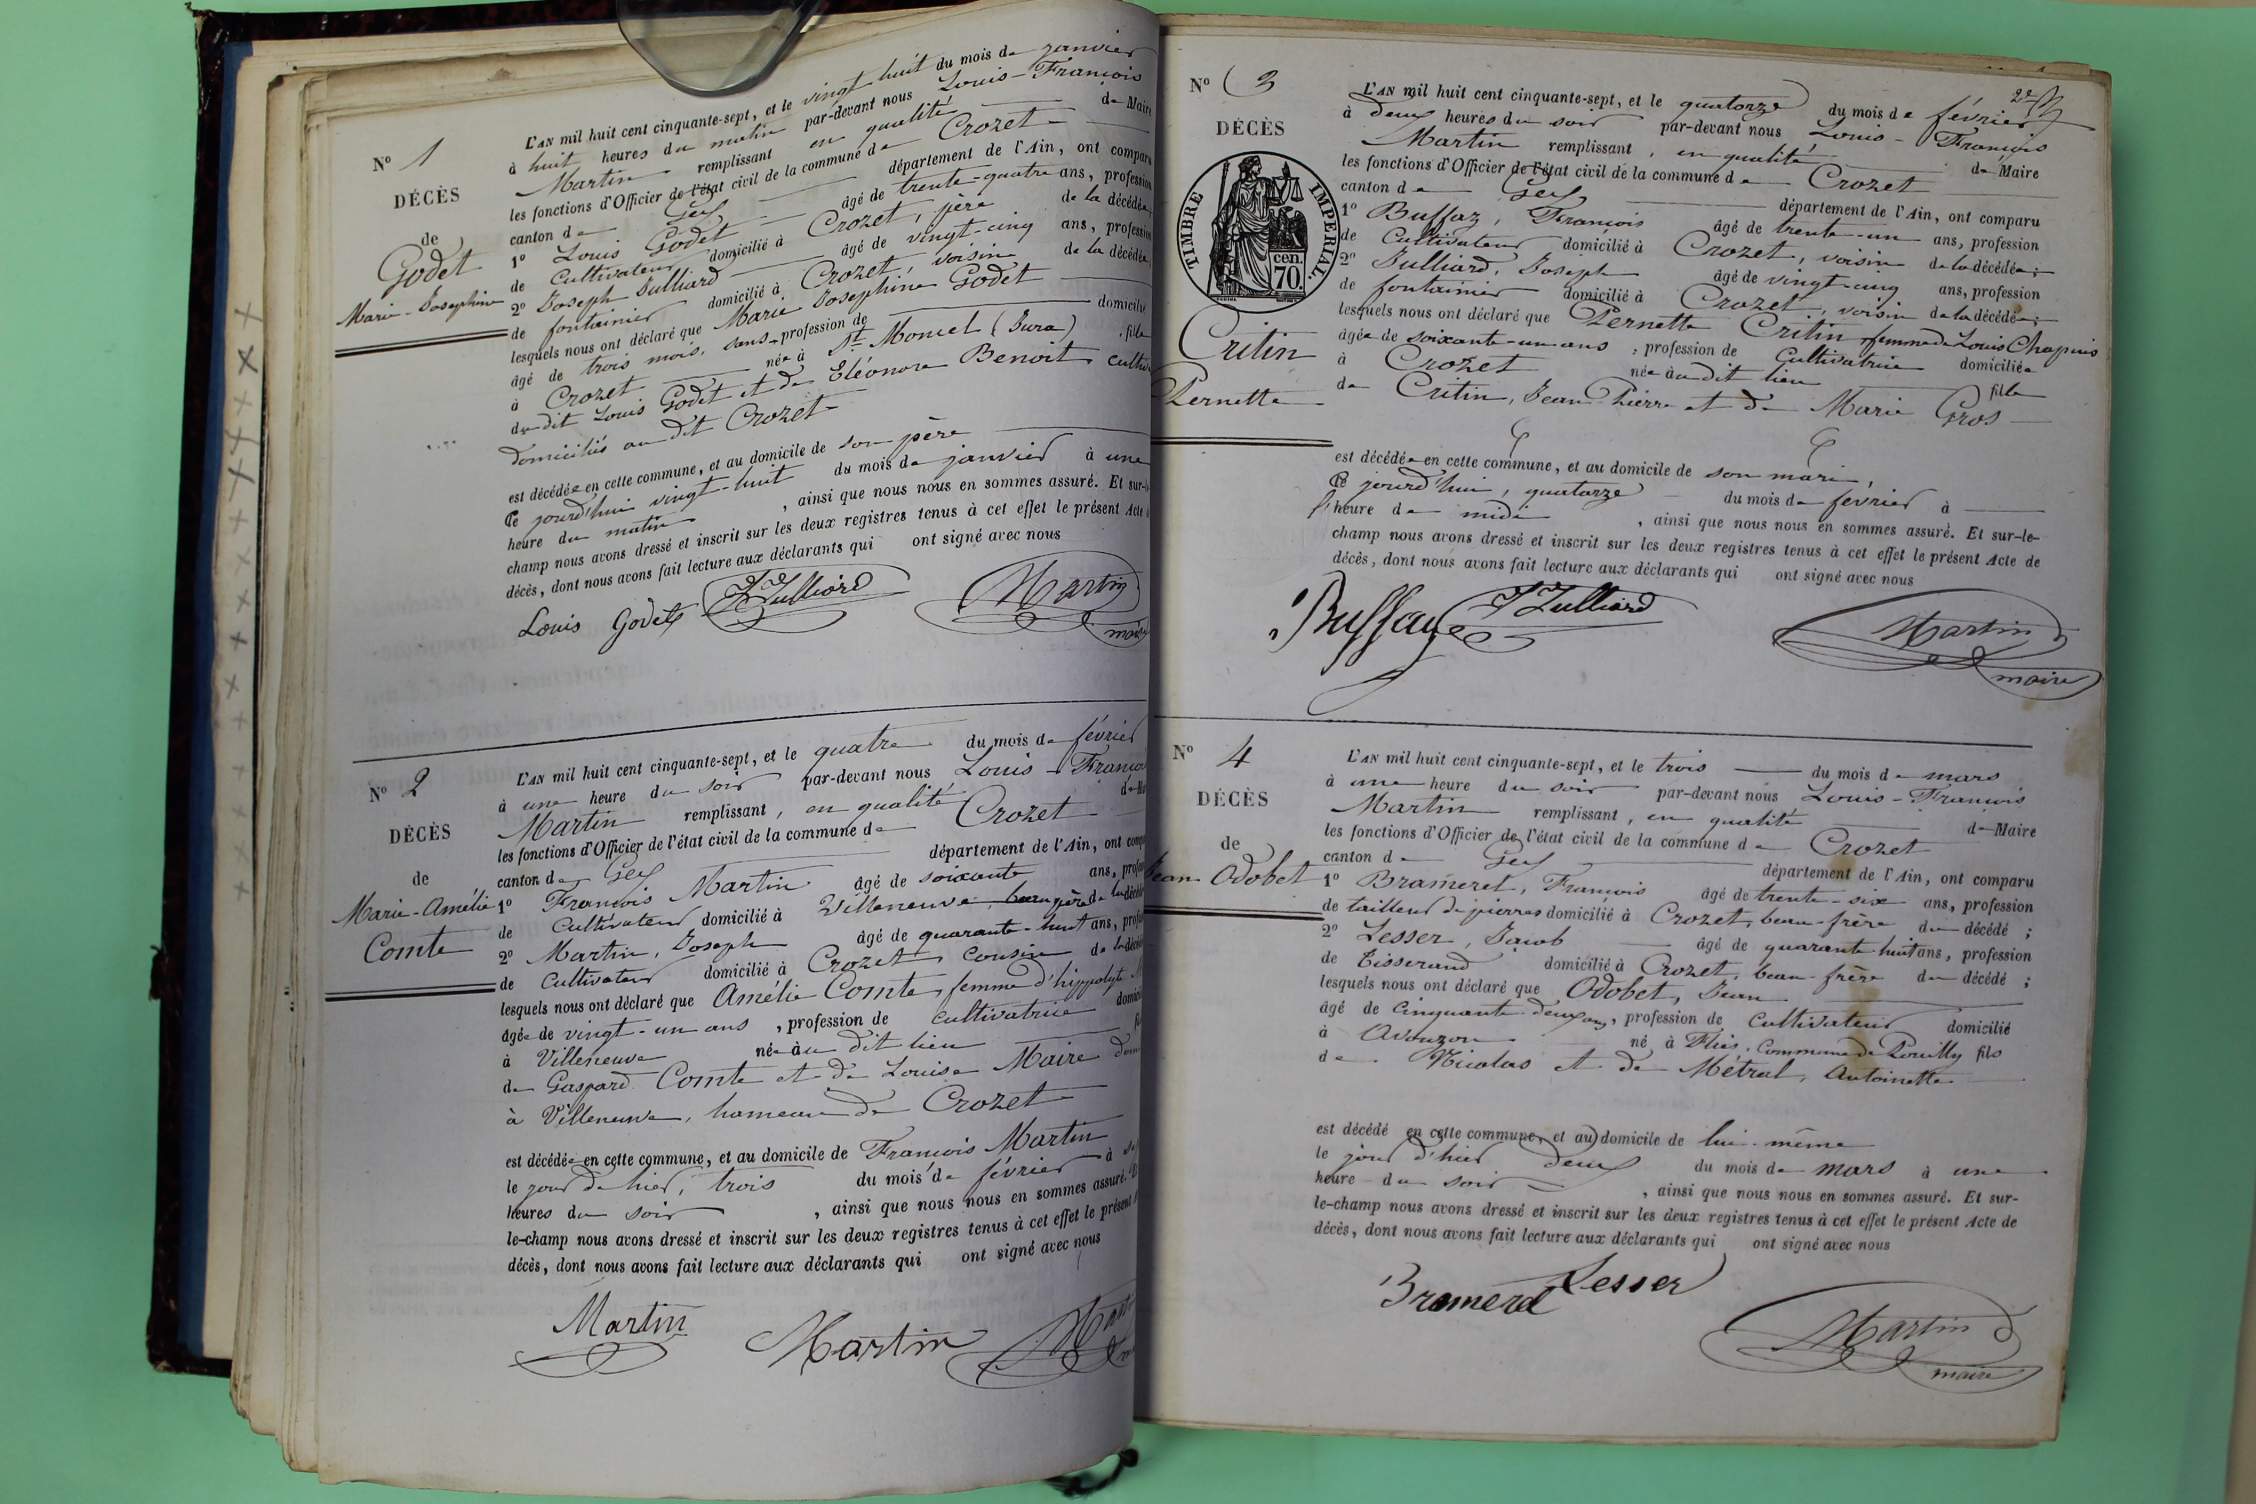 N° 1
DÉCÈS
de
Godet
Marie-Josephine
L'AN mil huit cent cinquante-sept, et le vingt huit du mois de janvier
à huit heures du matin par-devant nous Louis-François
Martin remplissant en qualité de Maire
les fonctions d'Officier de l'état civil de la commune de Crozet
canton de Gex département de l'Ain, ont comparu
1° Louis Godet âgé de trente-quatre ans, profession
de Cultivateur domicilié à Crozet, père de la décédée,
2° Joseph Julliard âgé de vingt-cinq ans, profession
de fontainier domicilié à Crozet, voisin de la décédée,
lesquels nous ont déclaré que Marie Josephine Godet
âgé de trois mois, sans profession de domicilié
à Crozet née à St Moncel (Jura), fille
du dit Louis Godet et de Eléonore Benoit culti
domiciliés au dit Crozet
est décédée en cette commune, et au domicile de son père
Ce jourd'hui vingt-huit du mois de janvier à une
heure du matin, ainsi que nous nous en sommes assuré. Et sur-le-
champ nous avons dressé et inscrit sur les deux registres tenus à cet effet le présent Acte de
décès, dont nous avons fait lecture aux déclarants qui ont signé avec nous
Louis Godet J Julliard Martin
maire
N° 2
DÉCÈS
de
Marie-Amélie
Comte
L'AN mil huit cent cinquante-sept, et le quatre du mois de février
à une heure du soir par-devant nous Louis-Franço
Martin remplissant, en qualité de Ma
les fonctions d'Officier de l'état civil de la commune de Crozet
canton de Gex département de l'Ain, ont comp
1° François Martin âgé de soixante ans, profes
de Cultivateur domicilié à Villeneuve, beau père de la décéd
2° Martin, Joseph âgé de quarante-huit ans, profe
de Cultivateur domicilié à Crozet, cousin de la décéd
lesquels nous ont déclaré que Amélie Comte, femme d'hippolyte M
âgée de vingt-un ans, profession de cultivatrice domici
à Villeneuve née àu dit lieu fi
de Gaspard Comte et de Louise Maire dom
à Villeneuve, hameau de Crozet
est décédée en cette commune, et au domicile de François Martin
le jour de hier, trois du mois de février à se
heures du soir, ainsi que nous nous en sommes assuré. Et
le-champ nous avons dressé et inscrit sur les deux registres tenus à cet effet le présent A
décès, dont nous avons fait lecture aux déclarants qui ont signé avec nous
Martin Martin Mart
N° 3
DÉCÈS
TIMBRE IMPERIAL.
cen.
70.
Critin
Pernette
2e
L'AN mil huit cent cinquante-sept, et le quatorze du mois de février
à deux heures du soir par-devant nous Louis-François
Martin remplissant, en qualité de Maire
les fonctions d'Officier de l'état civil de la commune de Crozet
canton de Gex département de l'Ain, ont comparu
1° Buffaz, François âgé de trente-un ans, profession
de Cultivateur domicilié à Crozet, voisin de la décédée;
2° Julliard, Joseph âgé de vingt-cinq ans, profession
de fontainier domicilié à Crozet, voisin de la décédée;
lesquels nous ont déclaré que Pernette Critin, femme de Louis Chapuis
âgée de soixante-un-ans, profession de Cultivatrice domiciliée
à Crozet née àu dit lieu fille
de Critin, Jean Pierre et de Marie Gros
est décédée en cette commune, et au domicile de son mari,
Ce jourd'hui, quatorze du mois de fevrier à
l'heure de midi, ainsi que nous nous en sommes assuré. Et sur-le-
champ nous avons dressé et inscrit sur les deux registres tenus à cet effet le présent Acte de
décès, dont nous avons fait lecture aux déclarants qui ont signé avec nous
Buffaz J Julliard Martin
maire
N° 4
DÉCÈS
de
Jean Odobet
L'AN mil huit cent cinquante-sept, et le trois du mois de mars
à une heure du soir par-devant nous Louis-François
Martin remplissant, en qualité de Maire
les fonctions d'Officier de l'état civil de la commune de Crozet
canton de Gex département de l'Ain, ont comparu
1° Brameret, François âgé de trente-six ans, profession
de tailleur de pierres domicilié à Crozet, beau-frère du décédé;
2° Lesser, Jacob âgé de quarante-huit ans, profession
de Tisserand domicilié à Crozet, beau-frère du décédé;
lesquels nous ont déclaré que Odobet, Jean
âgé de Cinquante-deux ans, profession de Cultivateur domicilié
à Avouzon né à Fliés, Commune de Pouilly fils
de Nicolas et de Métral, Antoinette
est décédé en cette commune, et au domicile de lui-même
le jour d'hier deux du mois de mars à une
heure du soir, ainsi que nous nous en sommes assuré. Et sur-
le-champ nous avons dressé et inscrit sur les deux registres tenus à cet effet le présent Acte de
décès, dont nous avons fait lecture aux déclarants qui ont signé avec nous
Brameret Lesser
Martin
maire